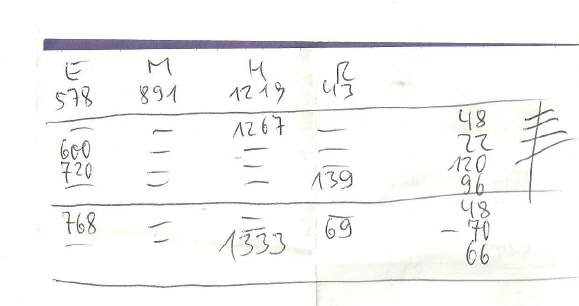 E M H R
578 891 1219 43
— — 1267 — 48
600 — — — 22
720 — — — 120
— — — 139 96
768 — — — 48
— — — 69 -70
— — 1333 — 66